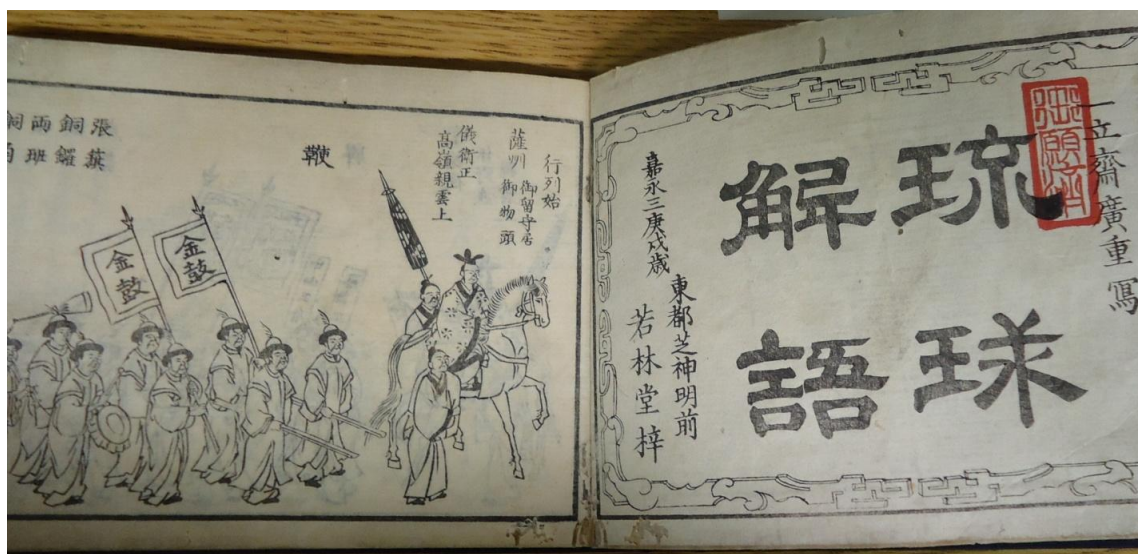 一立齋廣重寫
琉球
解語
嘉永三庚戌歳
東都芝神明前
若林堂梓
行列始
薩州
御留守居
御物頭
儀衛正
高嶺親雲上
鞭
金鼓
金鼓
張葢
銅鑼
両班